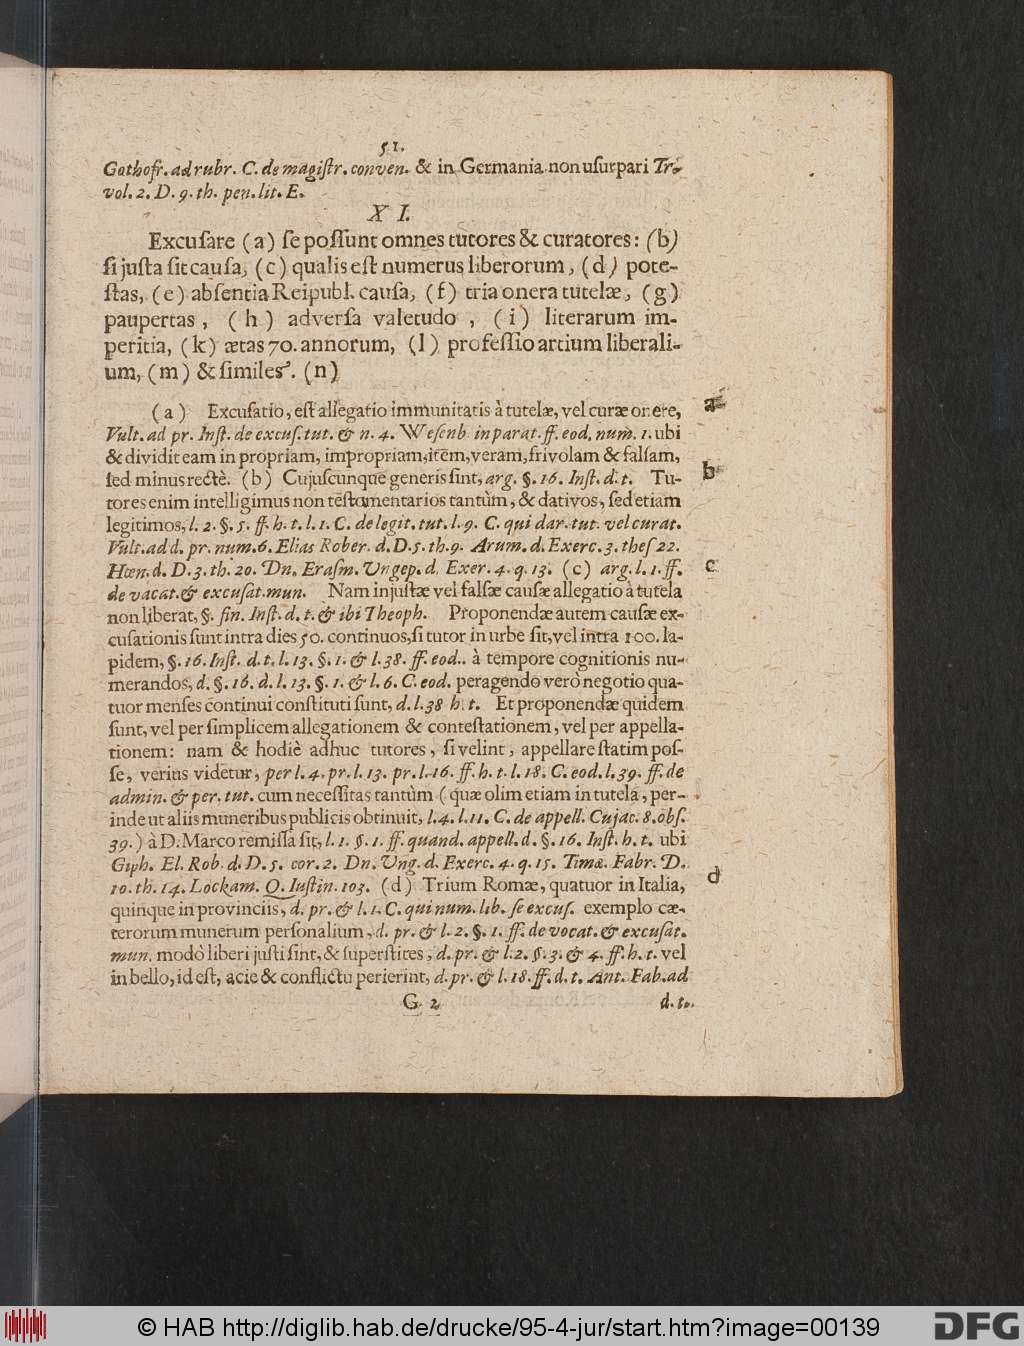 51.
Gothofr. ad rubr. C. de magistr. conven. & in Germania non usurpari Tr.
vol. 2. D. 9. th. pen. lit. E.
XI.
Excusare (a) se possunt omnes tutores & curatores: (b)
si justa sit causa, (c) qualis est numerus liberorum, (d) pote-
stas, (e) absentia Reipubl. causa, (f) tria onera tutelæ, (g)
paupertas, (h) adversa valetudo, (i) literarum im-
peritia, (k) ætas 70. annorum, (l) professio artium liberali-
um, (m) & similes. (n)
(a) Excusatio, est allegatio immunitatis à tutelæ, vel curæ onere,
Vult. ad pr. Inst. de excus. tut. & n. 4. Wesenb. in parat. ff. eod. num. 1. ubi
& dividit eam in propriam, impropriam, item, veram, frivolam & falsam,
sed minus rectè. (b) Cujuscunque generis sint, arg. §. 16. Inst. d. t. Tu-
tores enim intelligimus non testamentarios tantùm, & dativos, sed etiam
legitimos, l. 2. §. 5. ff. h. t. l. 1. C. de legit. tut. l. 9. C. qui dar. tut. vel curat.
Vult. ad d. pr. num. 6. Elias Rober. d. D. 5. th. 9. Arum. d. Exerc. 3. thes 22.
Hœn. d. D. 3. th. 20. Dn. Erasm. Ungep. d. Exer. 4. q. 13. (c) arg. l. 1. ff.
de vacat. & excusat. mun. Nam injustæ vel falsæ causæ allegatio à tutela
non liberat, §. fin. Inst. d. t. & ibi Theoph. Proponendæ autem causæ ex-
cusationis sunt intra dies 50. continuos, si tutor in urbe sit, vel intra 100. la-
pidem, §. 16. Inst. d. t. l. 13. §. 1. & l. 38. ff. eod. à tempore cognitionis nu-
merandos, d. §. 16. d. l. 13. §. 1. & l. 6. C. eod. peragendo verò negotio qua-
tuor menses continui constituti sunt, d. l. 38 h. t. Et proponendæ quidem
sunt, vel per simplicem allegationem & contestationem, vel per appella-
tionem: nam & hodiè adhuc tutores, si velint, appellare statim pos-
se, verius videtur, per l. 4. pr. l. 13. pr. l. 16. ff. h. t. l. 18. C. eod. l. 39. ff. de
admin. & per. tut. cum necessitas tantùm (quæ olim etiam in tutela, per-
inde ut aliis muneribus publicis obtinuit, l. 4. l. 11. C. de appell. Cujac. 8. obs.
39.) à D. Marco remissa sit, l. 1. §. 1. ff. quand. appell. d. §. 16. Inst. h. t. ubi
Giph. El. Rob. d. D. 5. cor. 2. Dn. Ung. d. Exerc. 4. q. 15. Timæ. Fabr. D.
10. th. 14. Lockam. Q. Iustin. 103. (d) Trium Romæ, quatuor in Italia,
quinque in provinciis, d. pr. & l. 1. C. qui num. lib. se excus. exemplo cæ-
terorum munerum personalium, d. pr. & l. 2. §. 1. ff. de vocat. & excusat.
mun. modò liberi justi sint, & superstites, d. pr. & l. 2. §. 3. & 4. ff. h. t. vel
in bello, id est, acie & conflictu perierint, d. pr. & l. 18. ff. d. t. Ant. Fab. ad
G 2
d. t.
a
b
c
d
© HAB http://diglib.hab.de/drucke/95-4-jur/start.htm?image=00139
DFG